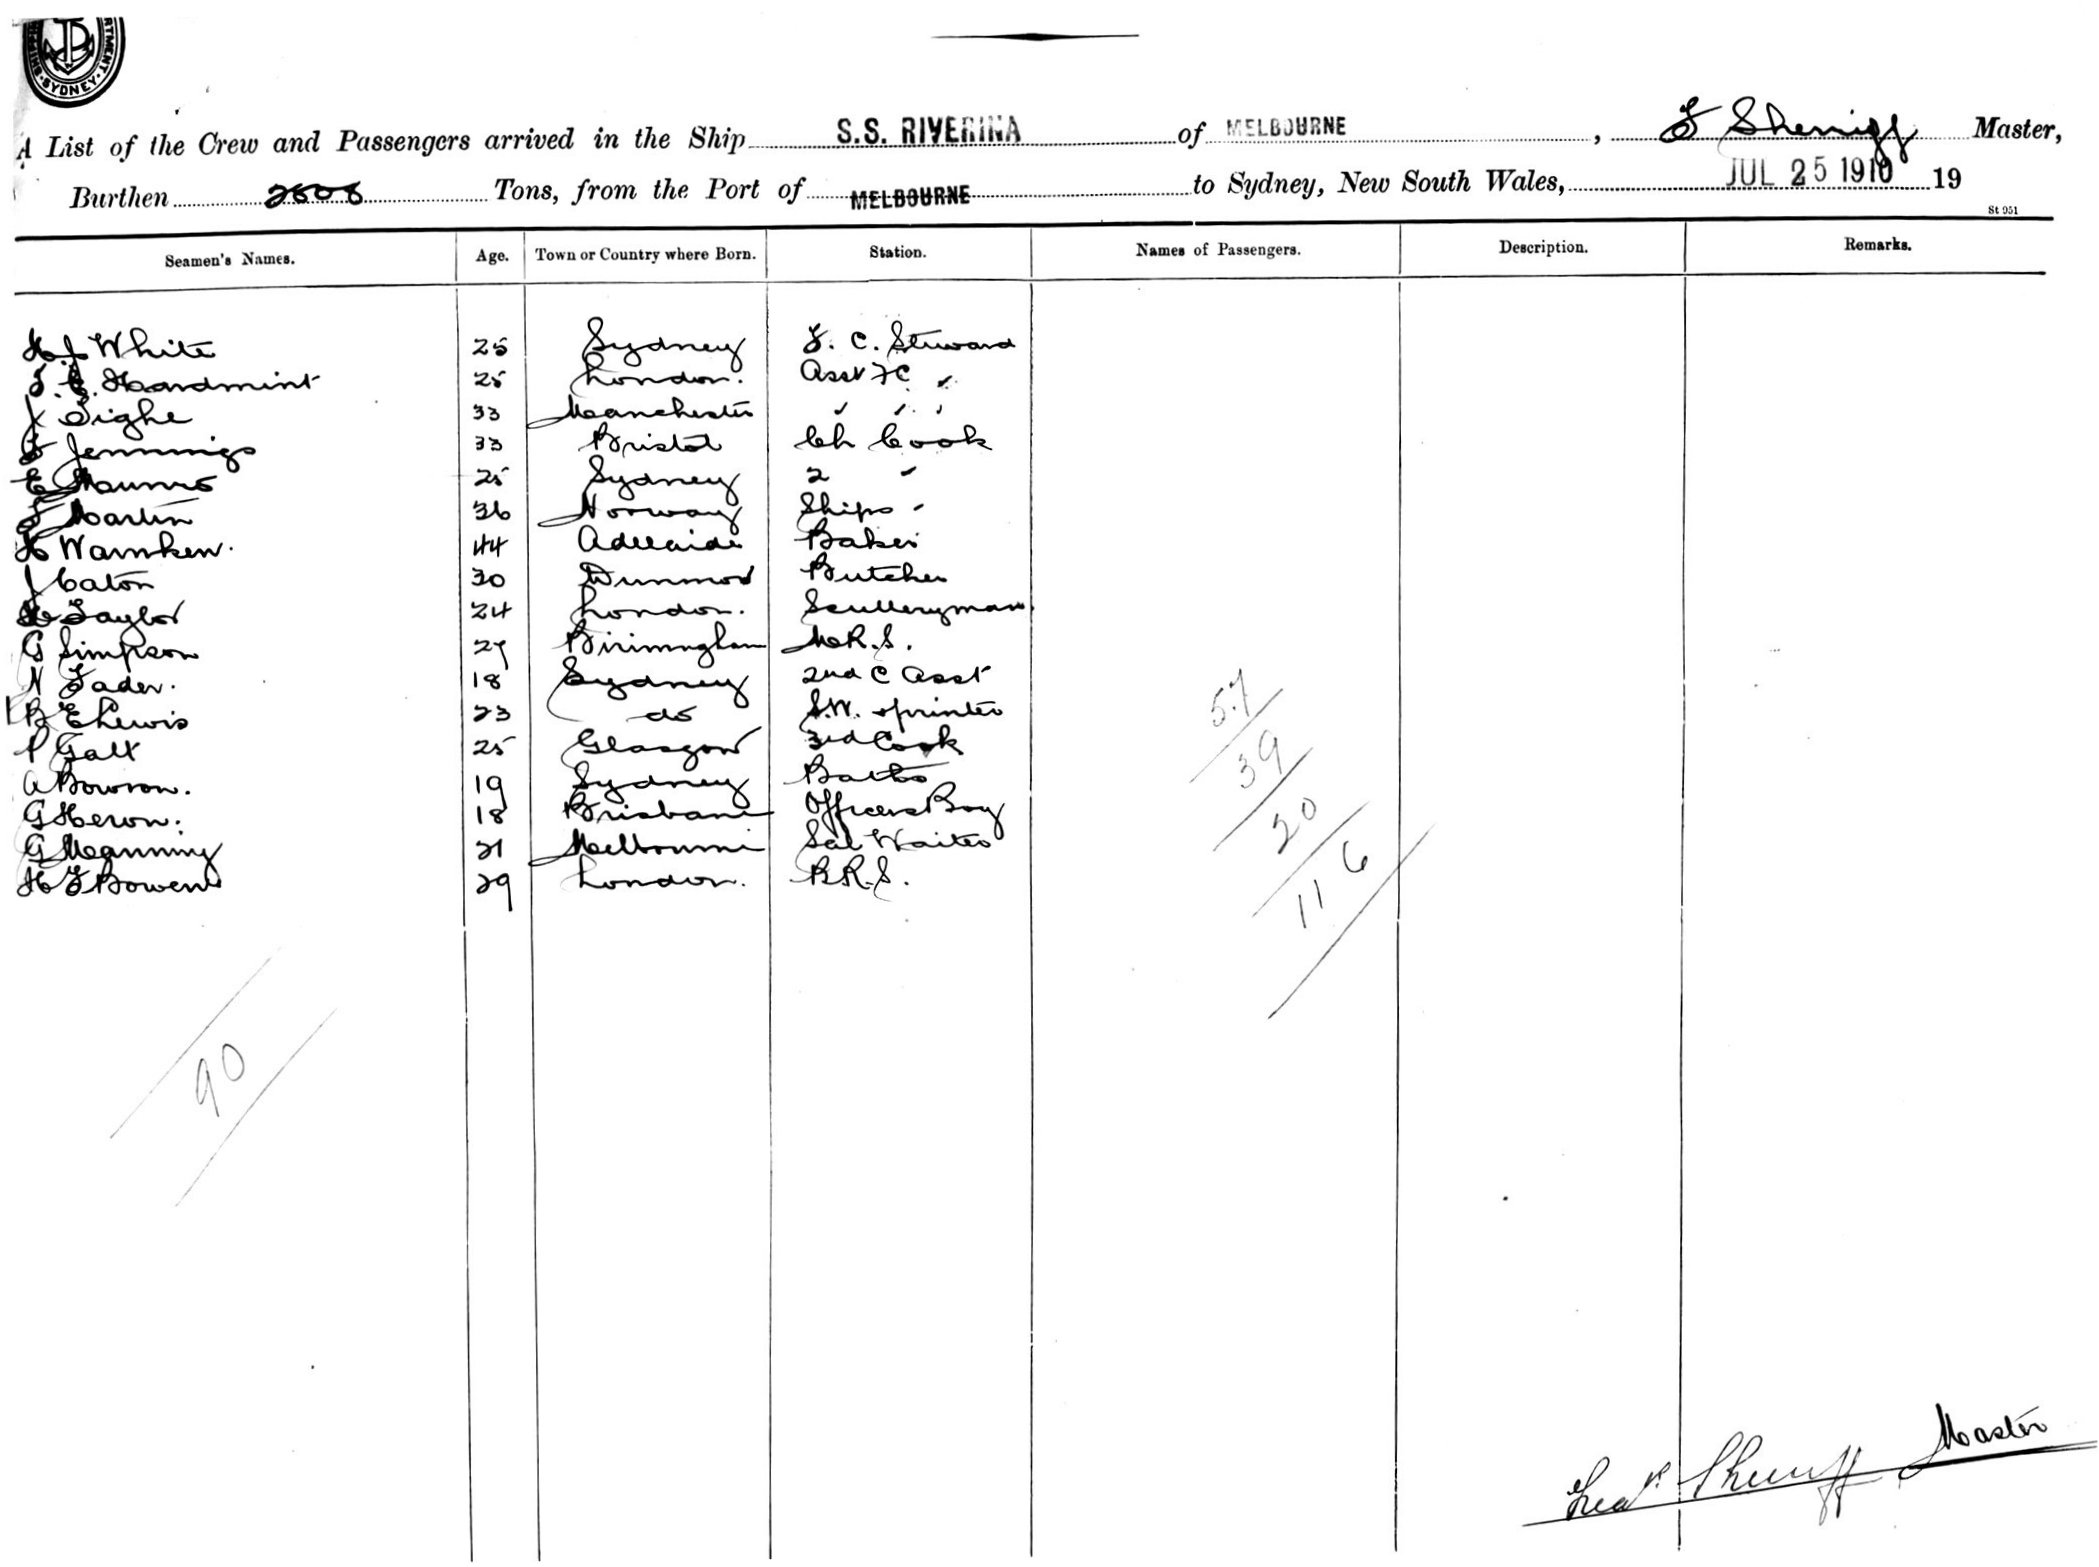 SYDNEY
A List of the Crew and Passengers arrived in the Ship S.S. RIVERINA of MELBOURNE, F Sherriff Master,
Burthen 2808 Tons, from the Port of MELBOURNE to Sydney, New South Wales, JUL 25 1910 19
St 951
Seamen's Names. Age. Town or Country where Born. Station. Names of Passengers. Description. Remarks.
H J White 25 Sydney F. C. Steward
Hardmint 25 London. Asst FC "
J Tighe 33 Manchester " " "
F Jennings 33 Bristol Ch Cook
E Maunro 25 Sydney 2 "
F Martin 36 Norway Ships "
H Warnken. 44 Adelaide Baker
J Caton 30 Butcher
H Taylor 24 London. Scullery man
G Simpson 27 Birimngham M.R.S.
N Fader. 18 Sydney 2nd C Asst
B E Lewis 23 do S.W. printer
P Galt 25 Glasgow 3rd Cook
A Bowron. 19 Sydney
G Heron. 18 Brisbane Officers Boy
G Manning 21 Melbourne Sal Waiter
H F Bowen 29 London. B.R.S.
57
39
20
116
90
Sherriff Master